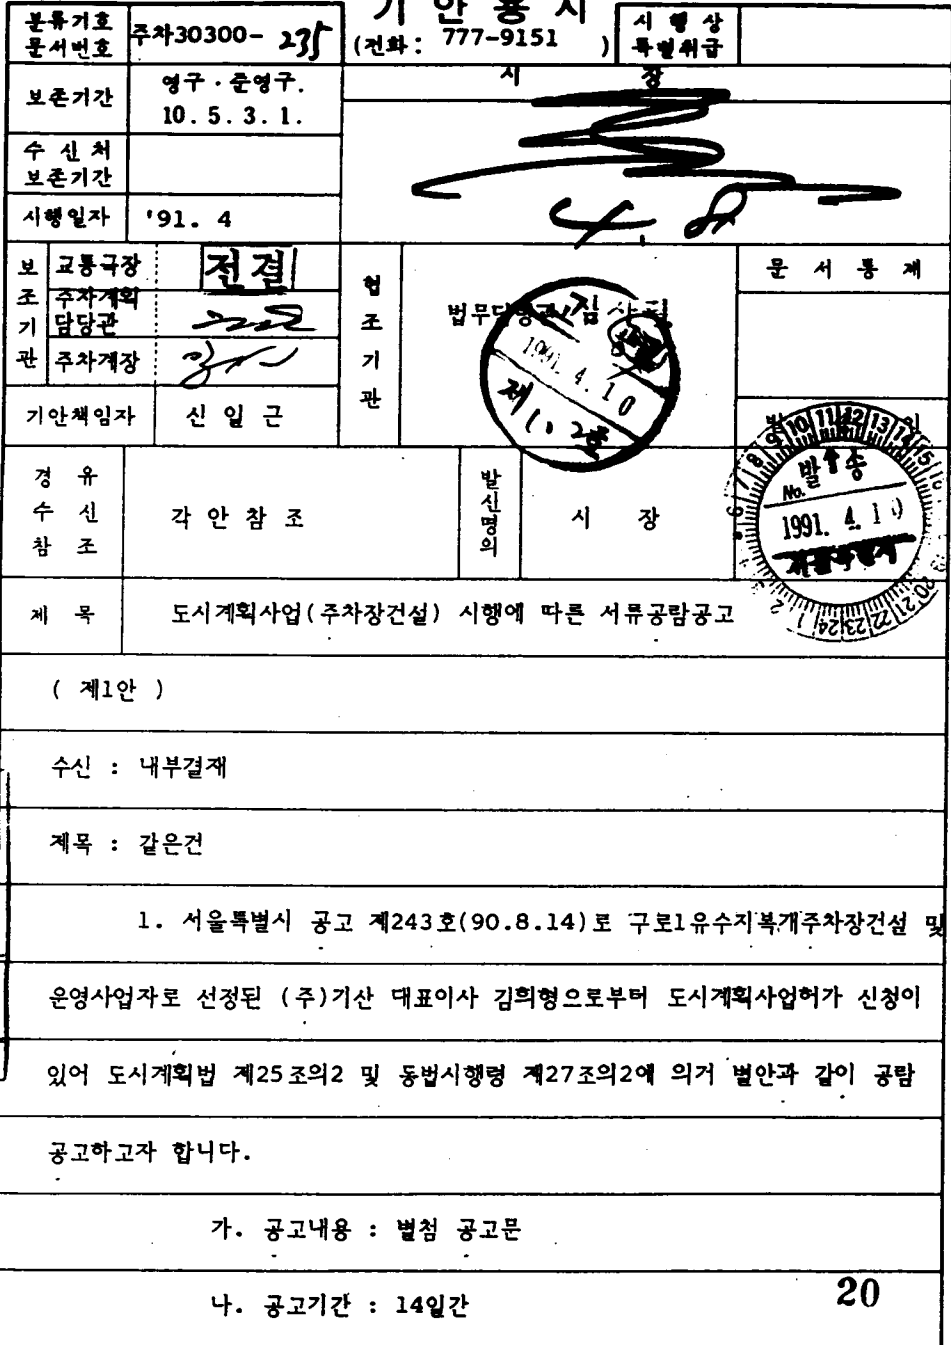 기 안 용 지
분류기호
문서번호
주차30300- 235
(전화: 777-9151 )
시 행 상
특별취급
보존기간
영구 · 준영구.
10. 5. 3. 1.
시 장
수 신 처
보존기간
시행일자
'91. 4
4. 8
보조기관
교통국장
전결
주차계획
담당관
주차계장
기안책임자
신 일 근
협조기관
법무담당관
1991. 4. 10
문 서 통 제
경 유
수 신
참 조
각 안 참 조
발신명의
시 장
발 송
No.
1991. 4. 10
제 목
도시계획사업(주차장건설) 시행에 따른 서류공람공고
( 제1안 )
수신 : 내부결재
제목 : 같은건
1. 서울특별시 공고 제243호(90.8.14)로 구로1유수지복개주차장건설 및
운영사업자로 선정된 (주)기산 대표이사 김희형으로부터 도시계획사업허가 신청이
있어 도시계획법 제25조의2 및 동법시행령 제27조의2에 의거 별안과 같이 공람
공고하고자 합니다.
가. 공고내용 : 별첨 공고문
나. 공고기간 : 14일간
20